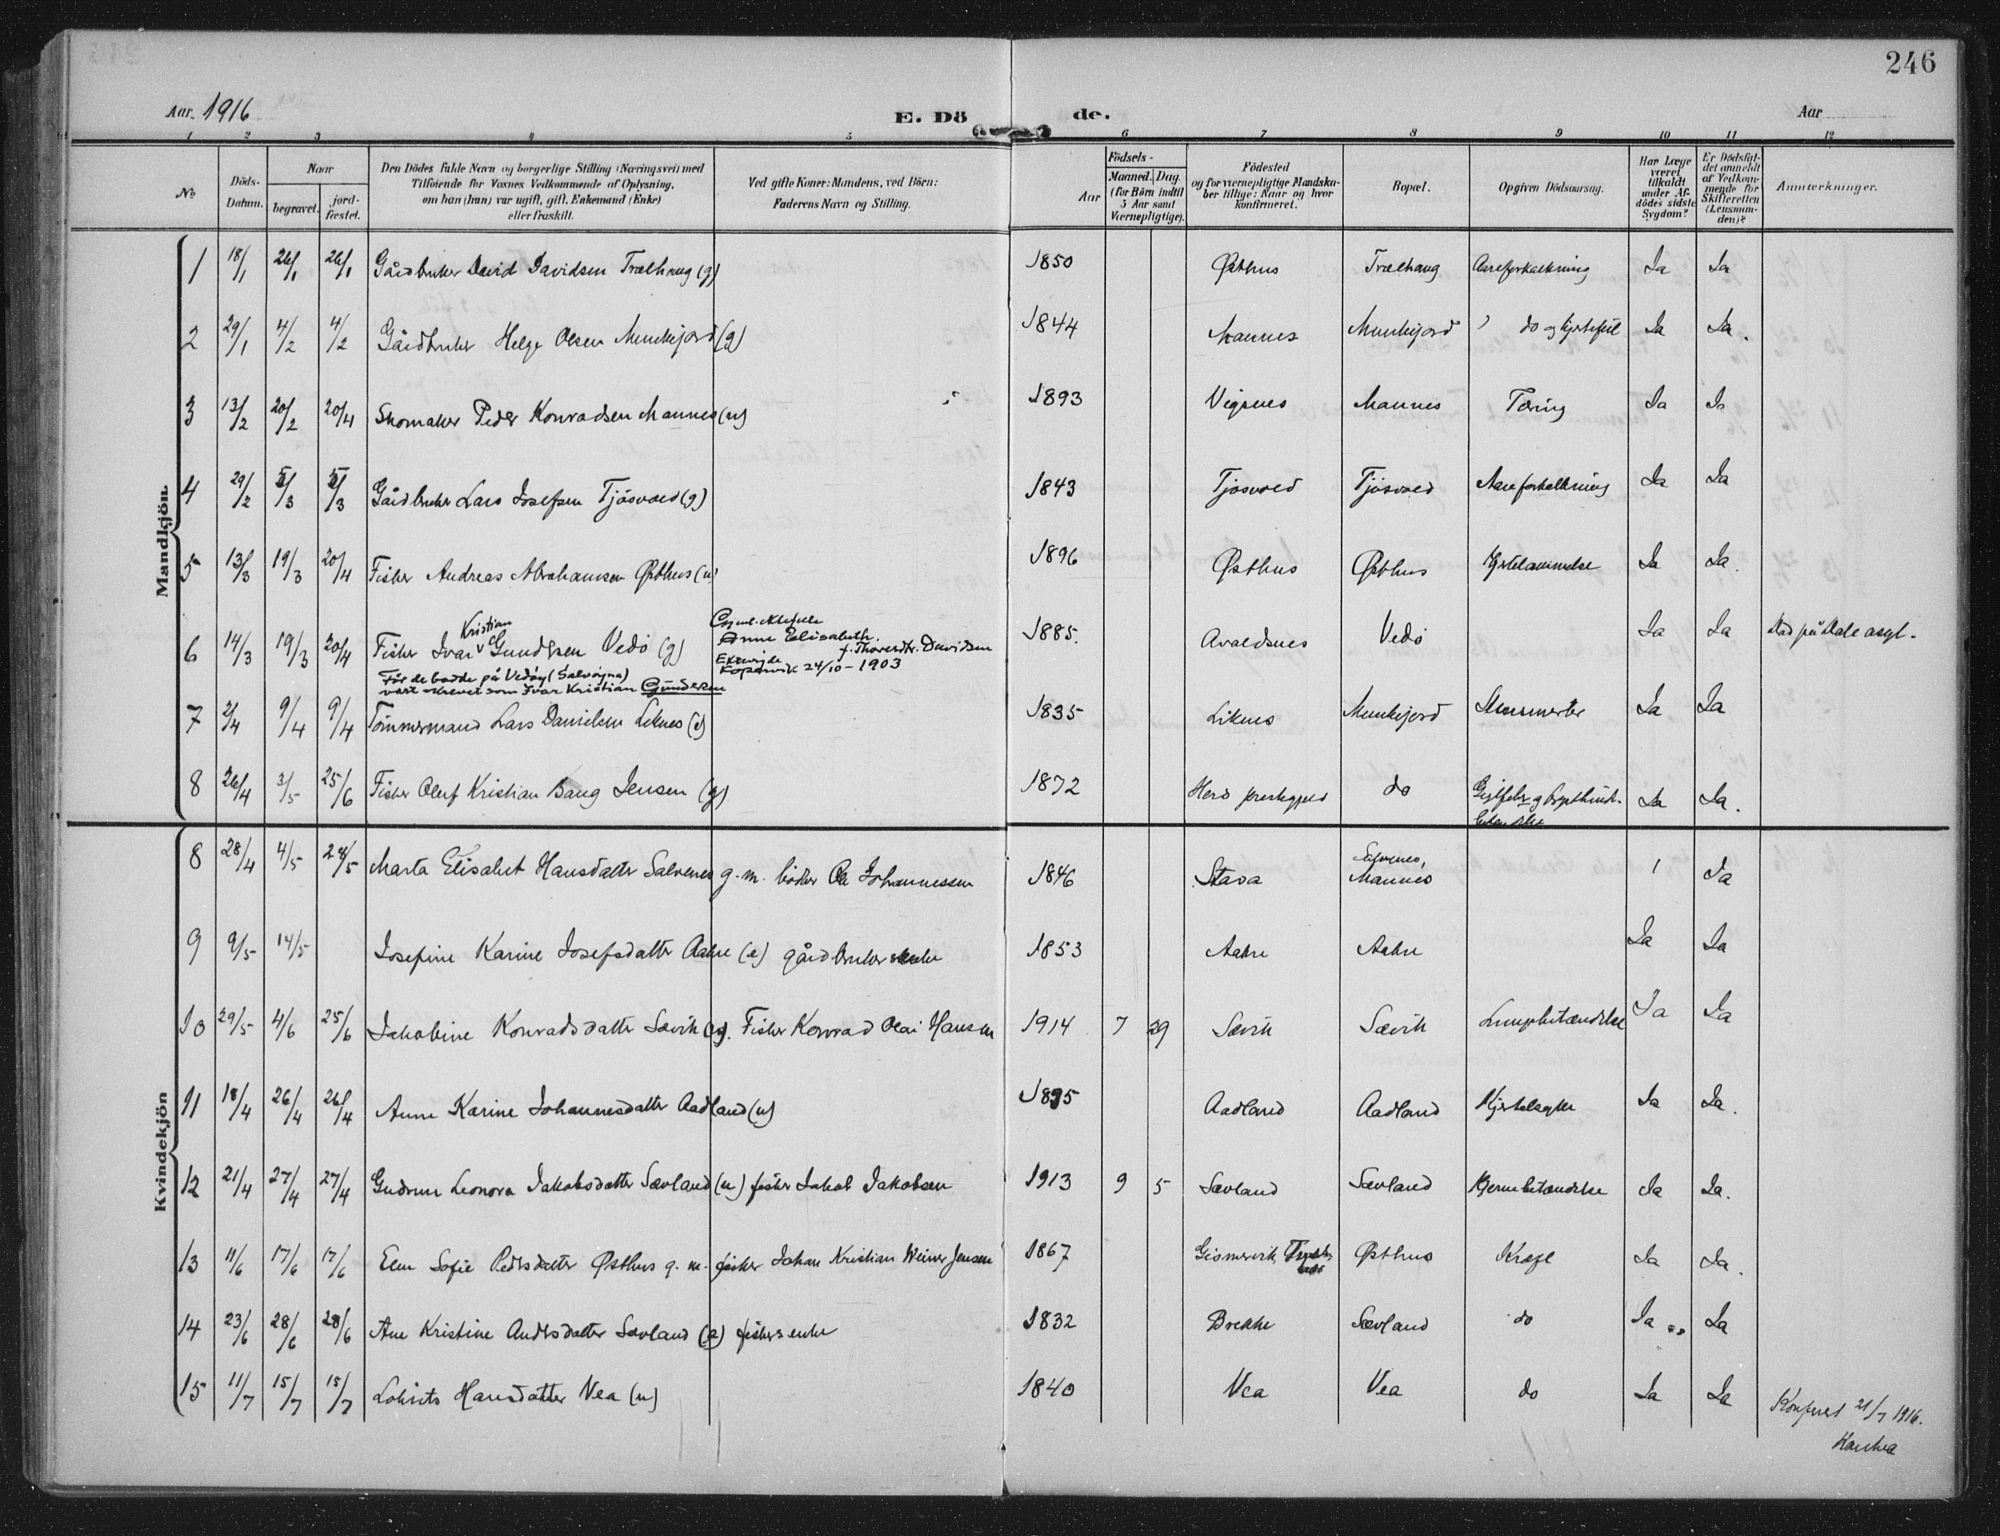 246
Aar. 1916
E. Dö de.
Aar
1 2 3 4 5 6 7 8 9 10 11 12
No
Döds-Datum.
Naar
begravet.
jord-fæstet.
Den Dödes fulde Navn og borgerlige Stilling (Næringsvei) med
Tilföiende for Voxnes Vedkommende af Oplysning,
om han (hun) var ugift, gift, Enkemand (Enke)
eller fraskilt.
Ved gifte Koner: Mandens, ved Börn:
Faderens Navn og Stilling.
Aar
Födsels-
Maaned. Dag.
(for Börn indtil
5 Aar samt
Værnepligtige).
Födested
og for værnepligtige Mandska-
ber tillige: Naar og hvor
konfirmeret.
Bopæl.
Opgiven Dödsaarsag.
Har Læge
været
tilkaldt
under Af-
dödes sidste
Sygdom?
Er Dödsfal-
det anmeldt
af Vedkom-
mende for
Skifteretten
(Lensman-
den)?
Anmerkninger.
Mandkjön.
1 18/1 26/1 26/1 Gårdbruker David Davidsen Trælhaug (g) 1850 Østhus Trælhaug Aareforkalkning Ja Ja
2 29/1 4/2 4/2 Gårdbruker Helge Olsen Munkejord (g) 1844 Mannes Munkejord do og hjertefeil Ja Ja.
3 13/2 20/2 20/4 Skomaker Peder Konradsen Mannes (u) 1893 Vigsnes Mannes Tæring Ja Ja
4 29/2 5/3 5/3 Gårdbruker Lars Josefsen Tjösvold (g) 1843 Tjösvold Tjösvold Aareforkalkning Ja Ja
5 13/3 19/3 20/4 Fisker Andreas Abrahamsen Østhus (u) 1896 Østhus Østhus Hjertelammelse Ja Ja.
Kristian
6 14/3 19/3 20/4 Fisker Ivar Gundersen Vedö (g)
Anne Elisabeth
f. Thorersdtr. Davidsen
Kopervik 24/10-1903
1885. Avaldsnes Vedö Ja Ja Död på Dale asyl.
För de bodde på Vedöy (Salvöyna)
vart skrevet som Ivar Kristian Gundersen
7 2/4 9/4 9/4 Tömmermand Lars Danielsen Liknes (e) 1835 Liknes Munkejord Ja Ja
8 26/4 3/5 25/6 Fisker Oluf Kristian Bang Jensen (g) 1872 Herö prestegjeld do Ja Ja.
Kvindekjön
8 28/4 4/5 24/5 Marta Elisabet Hansdatter Salvenes g. m. bödker Ole Johannessen 1846 Stava Salvenes, Mannes Ja
9 9/5 14/5 Josefine Karine Josefsdatter Aakre (e) gårdbrukerenke 1853 Aakre Aakre Ja Ja
10 29/5 4/6 25/6 Jakobine Konradsdatter Sævik (u). Fisker Konrad Olai Hansen 1914 7 29 Sævik Sævik Lungebetændelse Ja Ja
11 18/4 26/4 26/4 Anne Karine Johannesdatter Aadland (u) 1895 Aadland Aadland Hjertelagte Ja Ja.
12 21/4 27/4 27/4 Gudrun Leonora Jakobsdatter Sævland (u) fisker Jakob Jakobsen 1913 9 5 Sævland Sævland Hjernebetændelse Ja Ja.
13 11/6 17/6 17/6 Elen Sofie Pedersdatter Østhus g. m. fisker Johan Kristian Weiner Jensen 1867 Gismervik, Østhus Kræft Ja Ja.
14 23/6 28/6 28/6 Ane Kristine Andersdatter Sævland (e) fiskers enke 1832 Brekke Sævland do Ja Ja
15 11/7 15/7 15/7 Hansdatter Vea (u) 1840 Vea Vea do Ja Ja
Konferert 21/7 1916.